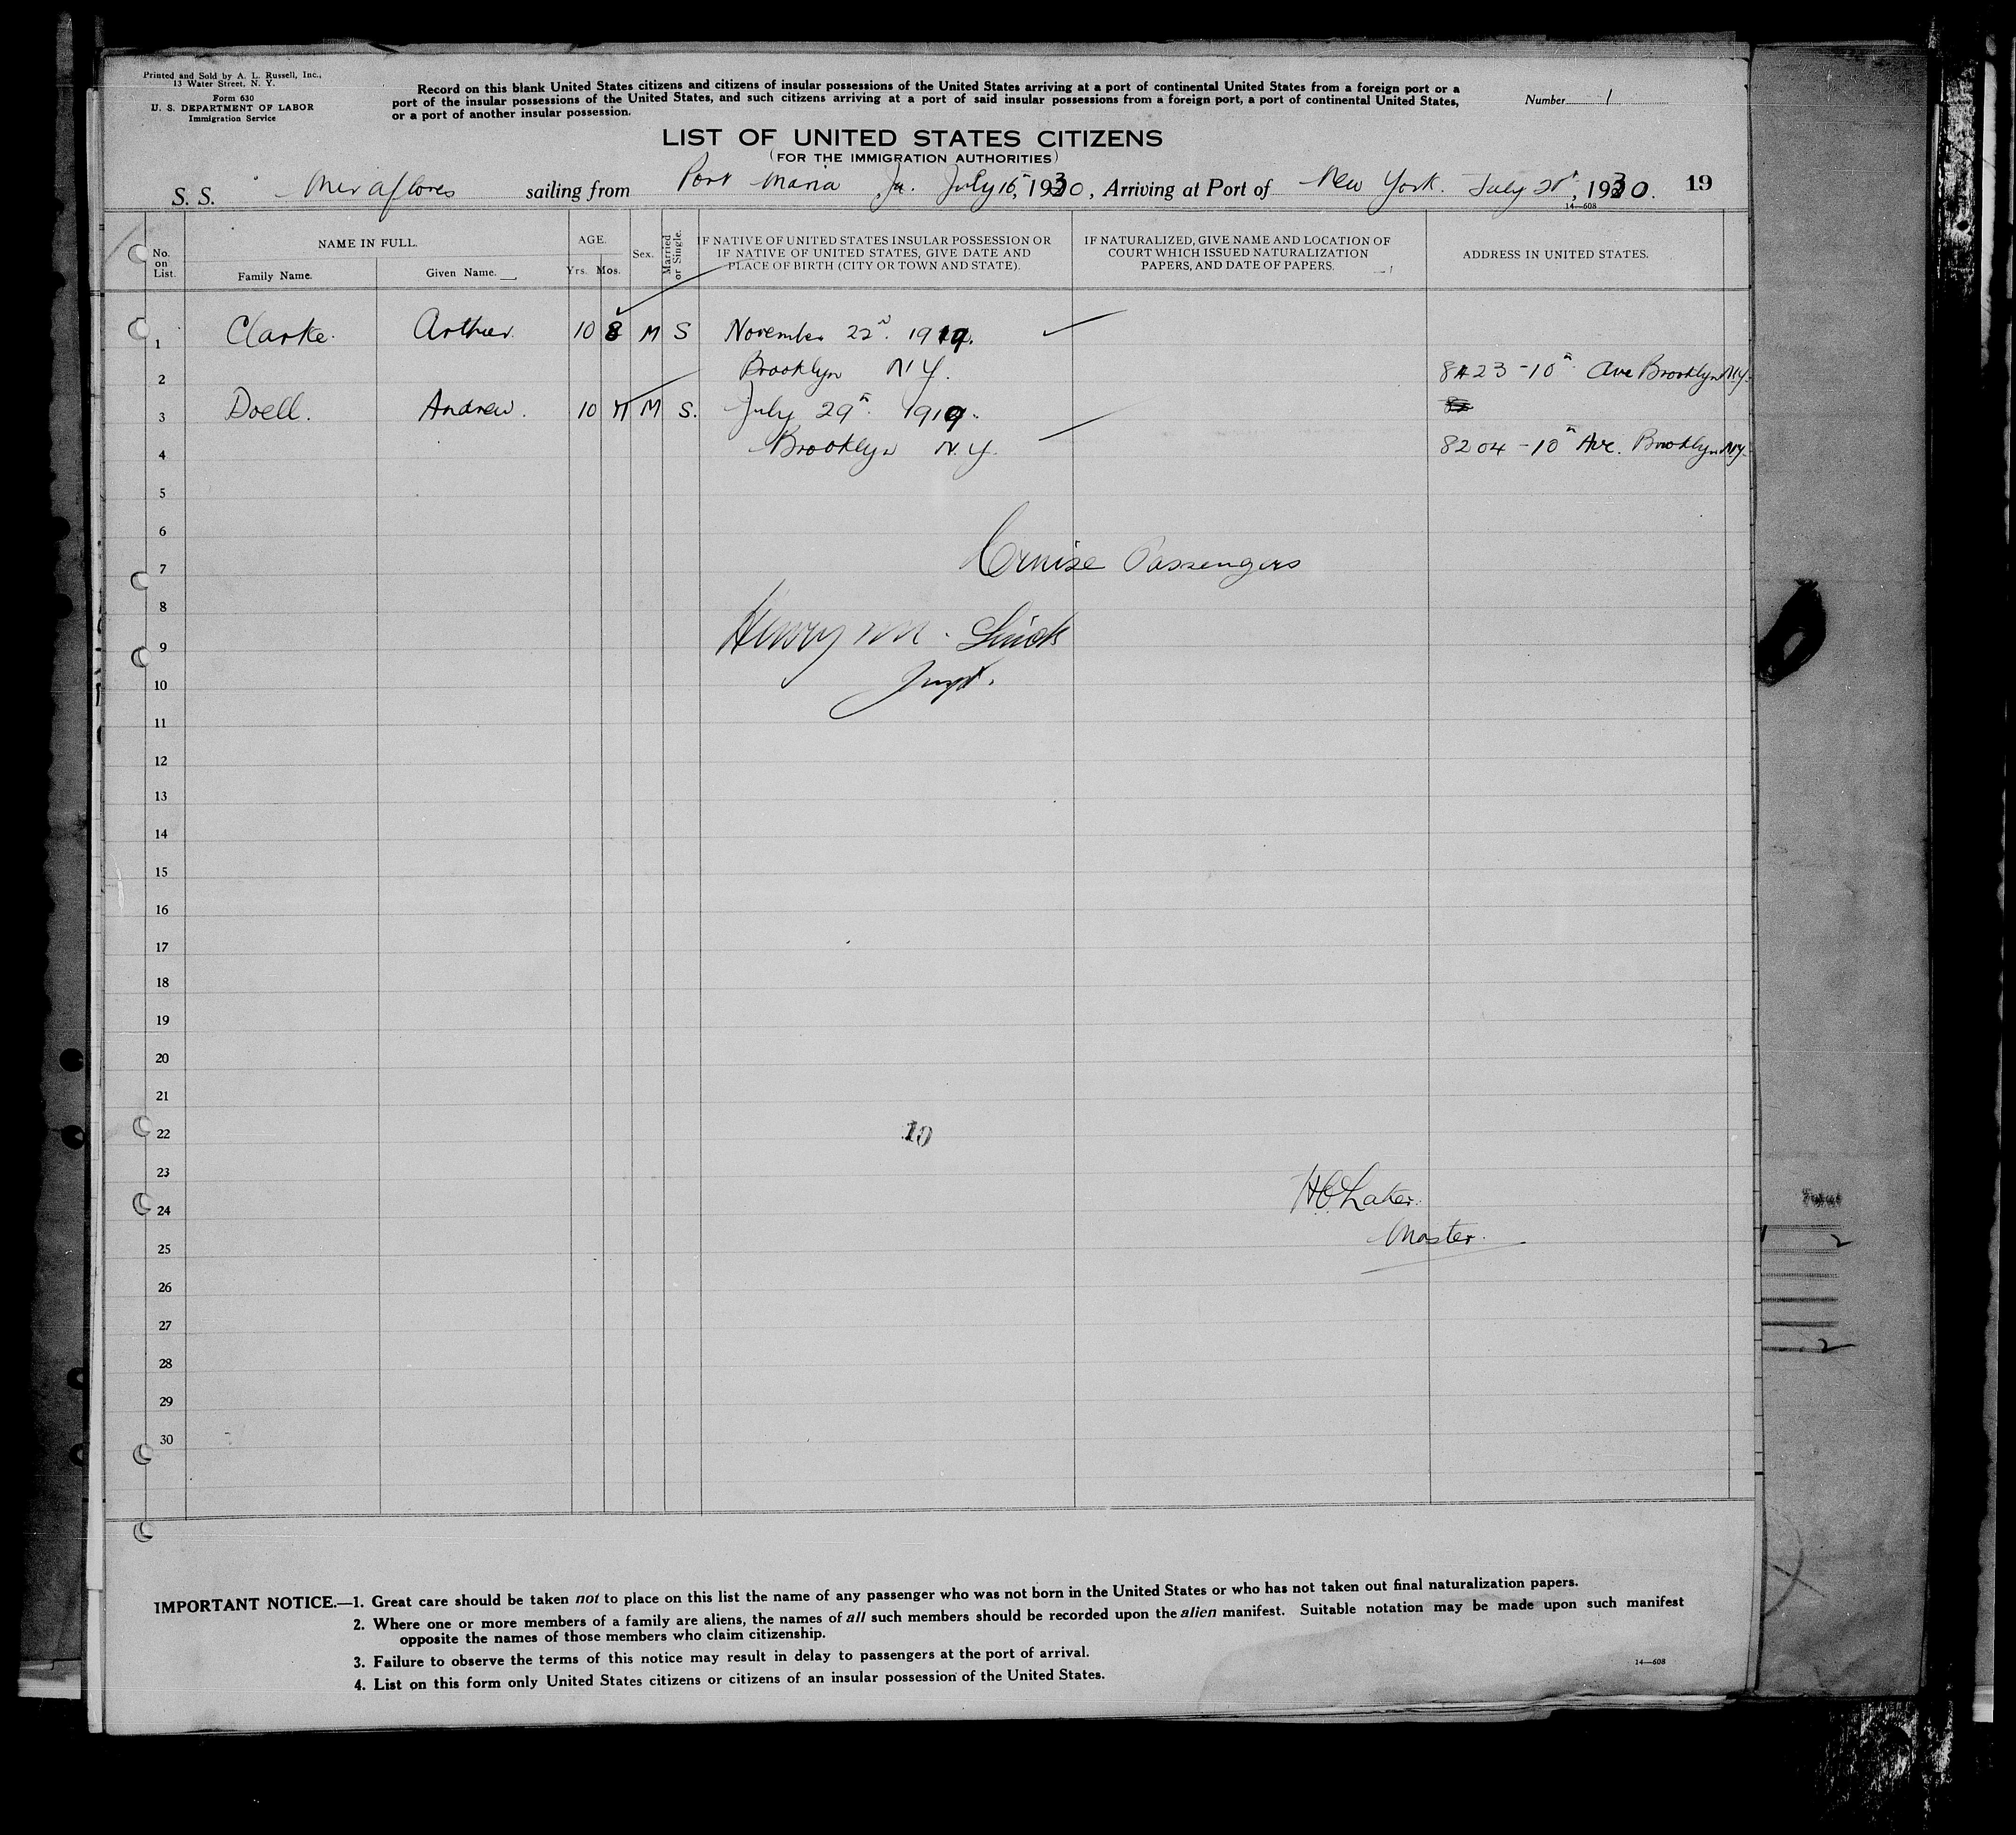 Printed and Sold by A. L. Russell, Inc.,
13 Water Street, N. Y.
Form 630
U. S. DEPARTMENT OF LABOR
Immigration Service
Record on this blank United States citizens and citizens of insular possessions of the United States arriving at a port of continental United States from a foreign port or a
port of the insular possessions of the United States, and such citizens arriving at a port of said insular possessions from a foreign port, a port of continental United States,
or a port of another insular possession.
Number 1
LIST OF UNITED STATES CITIZENS
(FOR THE IMMIGRATION AUTHORITIES)
S. S. Miraflores sailing from Port Maria Ja. July 15, 1930, Arriving at Port of New York. July 21st, 1930. 19
14—608
No. on List.
NAME IN FULL.
Family Name.
Given Name.
AGE.
Yrs. Mos.
Sex.
Married or Single.
IF NATIVE OF UNITED STATES INSULAR POSSESSION OR
IF NATIVE OF UNITED STATES, GIVE DATE AND
PLACE OF BIRTH (CITY OR TOWN AND STATE).
IF NATURALIZED, GIVE NAME AND LOCATION OF
COURT WHICH ISSUED NATURALIZATION
PAPERS, AND DATE OF PAPERS.
ADDRESS IN UNITED STATES.
1 Clarke. Arthur. 10 8 M S November 22n. 1919.
2 Brooklyn N.Y. 8423-10th Ave Brooklyn N.Y.
3 Doell. Andrew. 10 11 M S. July 29th. 1919.
4 Brooklyn N.Y. 8204-10th Ave. Brooklyn N.Y.
5
6
7 Cruise Passengers
8
9 Henry M.
10 Inspt.
11
12
13
14
15
16
17
18
19
20
21
22 10
23
24 H.C. Laker.
25 Master.
26
27
28
29
30
IMPORTANT NOTICE.—1. Great care should be taken not to place on this list the name of any passenger who was not born in the United States or who has not taken out final naturalization papers.
2. Where one or more members of a family are aliens, the names of all such members should be recorded upon the alien manifest. Suitable notation may be made upon such manifest
opposite the names of those members who claim citizenship.
3. Failure to observe the terms of this notice may result in delay to passengers at the port of arrival.
4. List on this form only United States citizens or citizens of an insular possession of the United States.
14—608